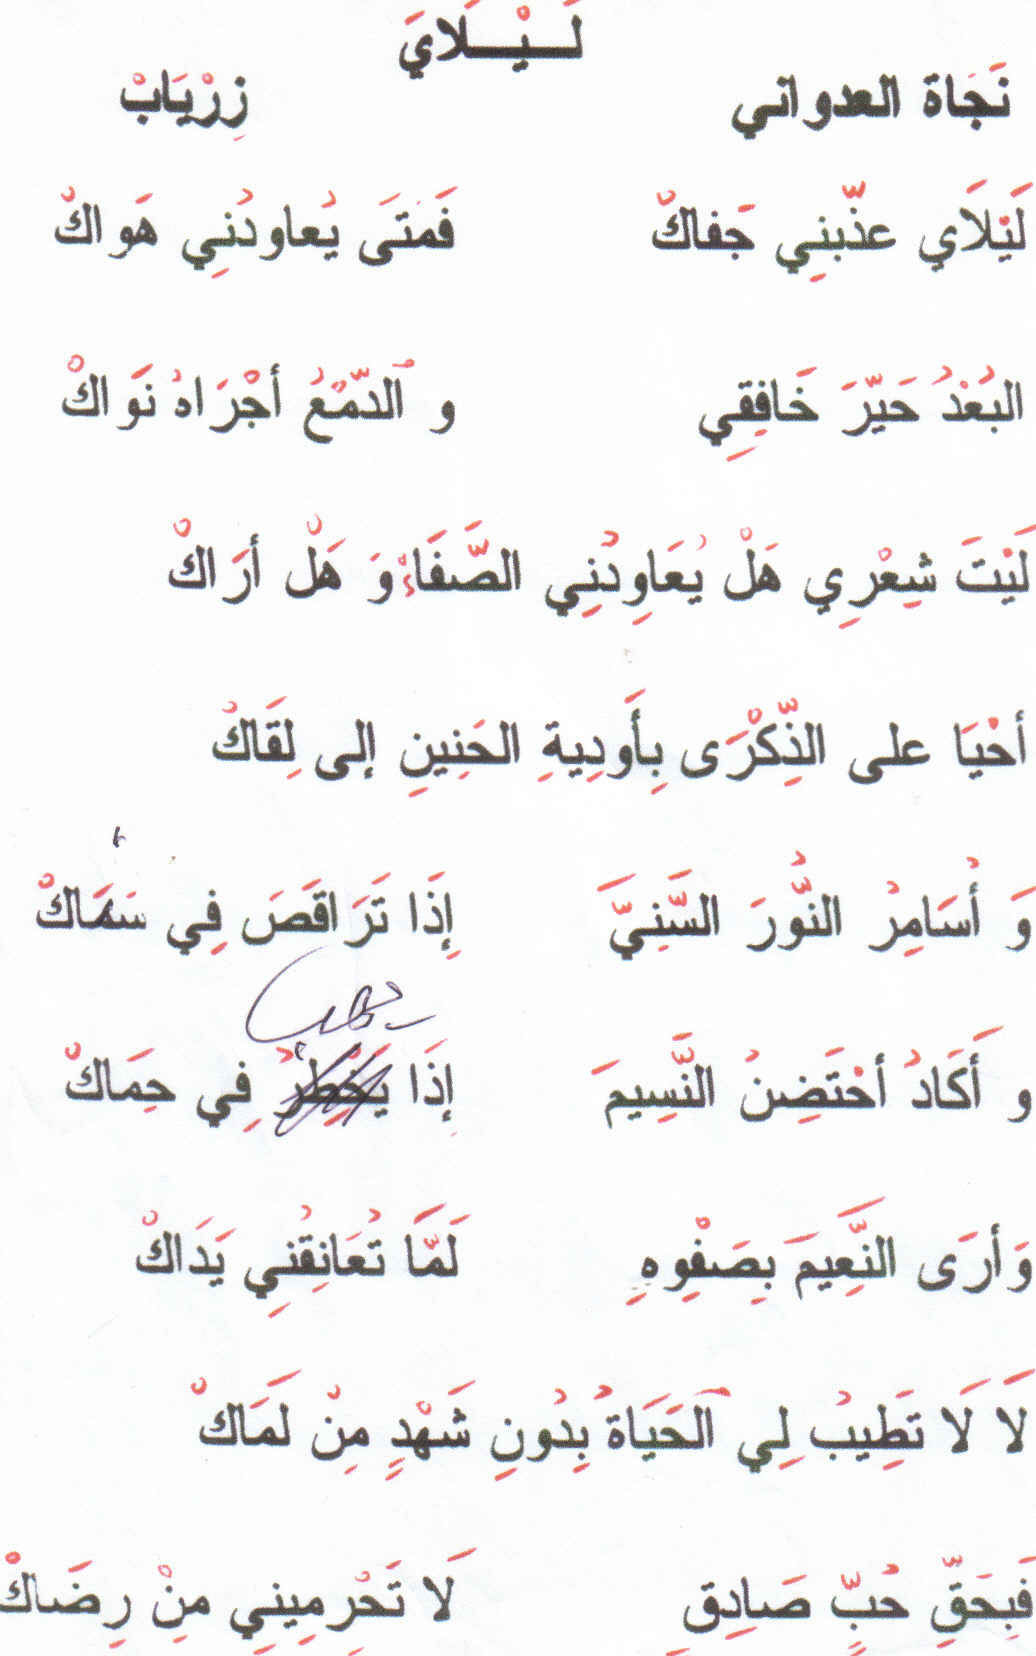 لَــيْــلَايَ
نَجَاة العدواني زِرْيَابْ
لَيْلَاي عذّبنِي جَفاكْ فَمَتَى يُعاودُنِي هَواكْ
البُعْدُ حَيّرَ خَافِقِي و ٱلدّمْعُ أجْرَاهُ نَواكْ
لَيْتَ شِعْرِي هَلْ يُعَاوِدُنِي الصَّفَاءُ وَ هَلْ أرَاكْ
أحْيَا على الذِّكْرَى بِأَودِيةِ الحَنِينِ إلى لِقَاكْ
وَ أُسَامِرُ النُّورَ السَّنِيَّ إِذَا تَرَاقَصَ فِي سَمَاكْ
و أَكَادُ أحْتَضِنُ النَّسِيمَ إذَا يَخْطِرُ فِي حِمَاكْ
وَأرَى النَّعِيمَ بِصَفْوِهِ لَمَّا تُعَانِقُنِي يَدَاكْ
لَا لَا تَطِيبُ لِي ٱلحَيَاةُ بِدُونِ شَهْدٍ مِنْ لَمَاكْ
فَبِحَقِّ حُبٍّ صَادِقٍ لَا تَحْرِمِينِي مِنْ رِضَاكْ